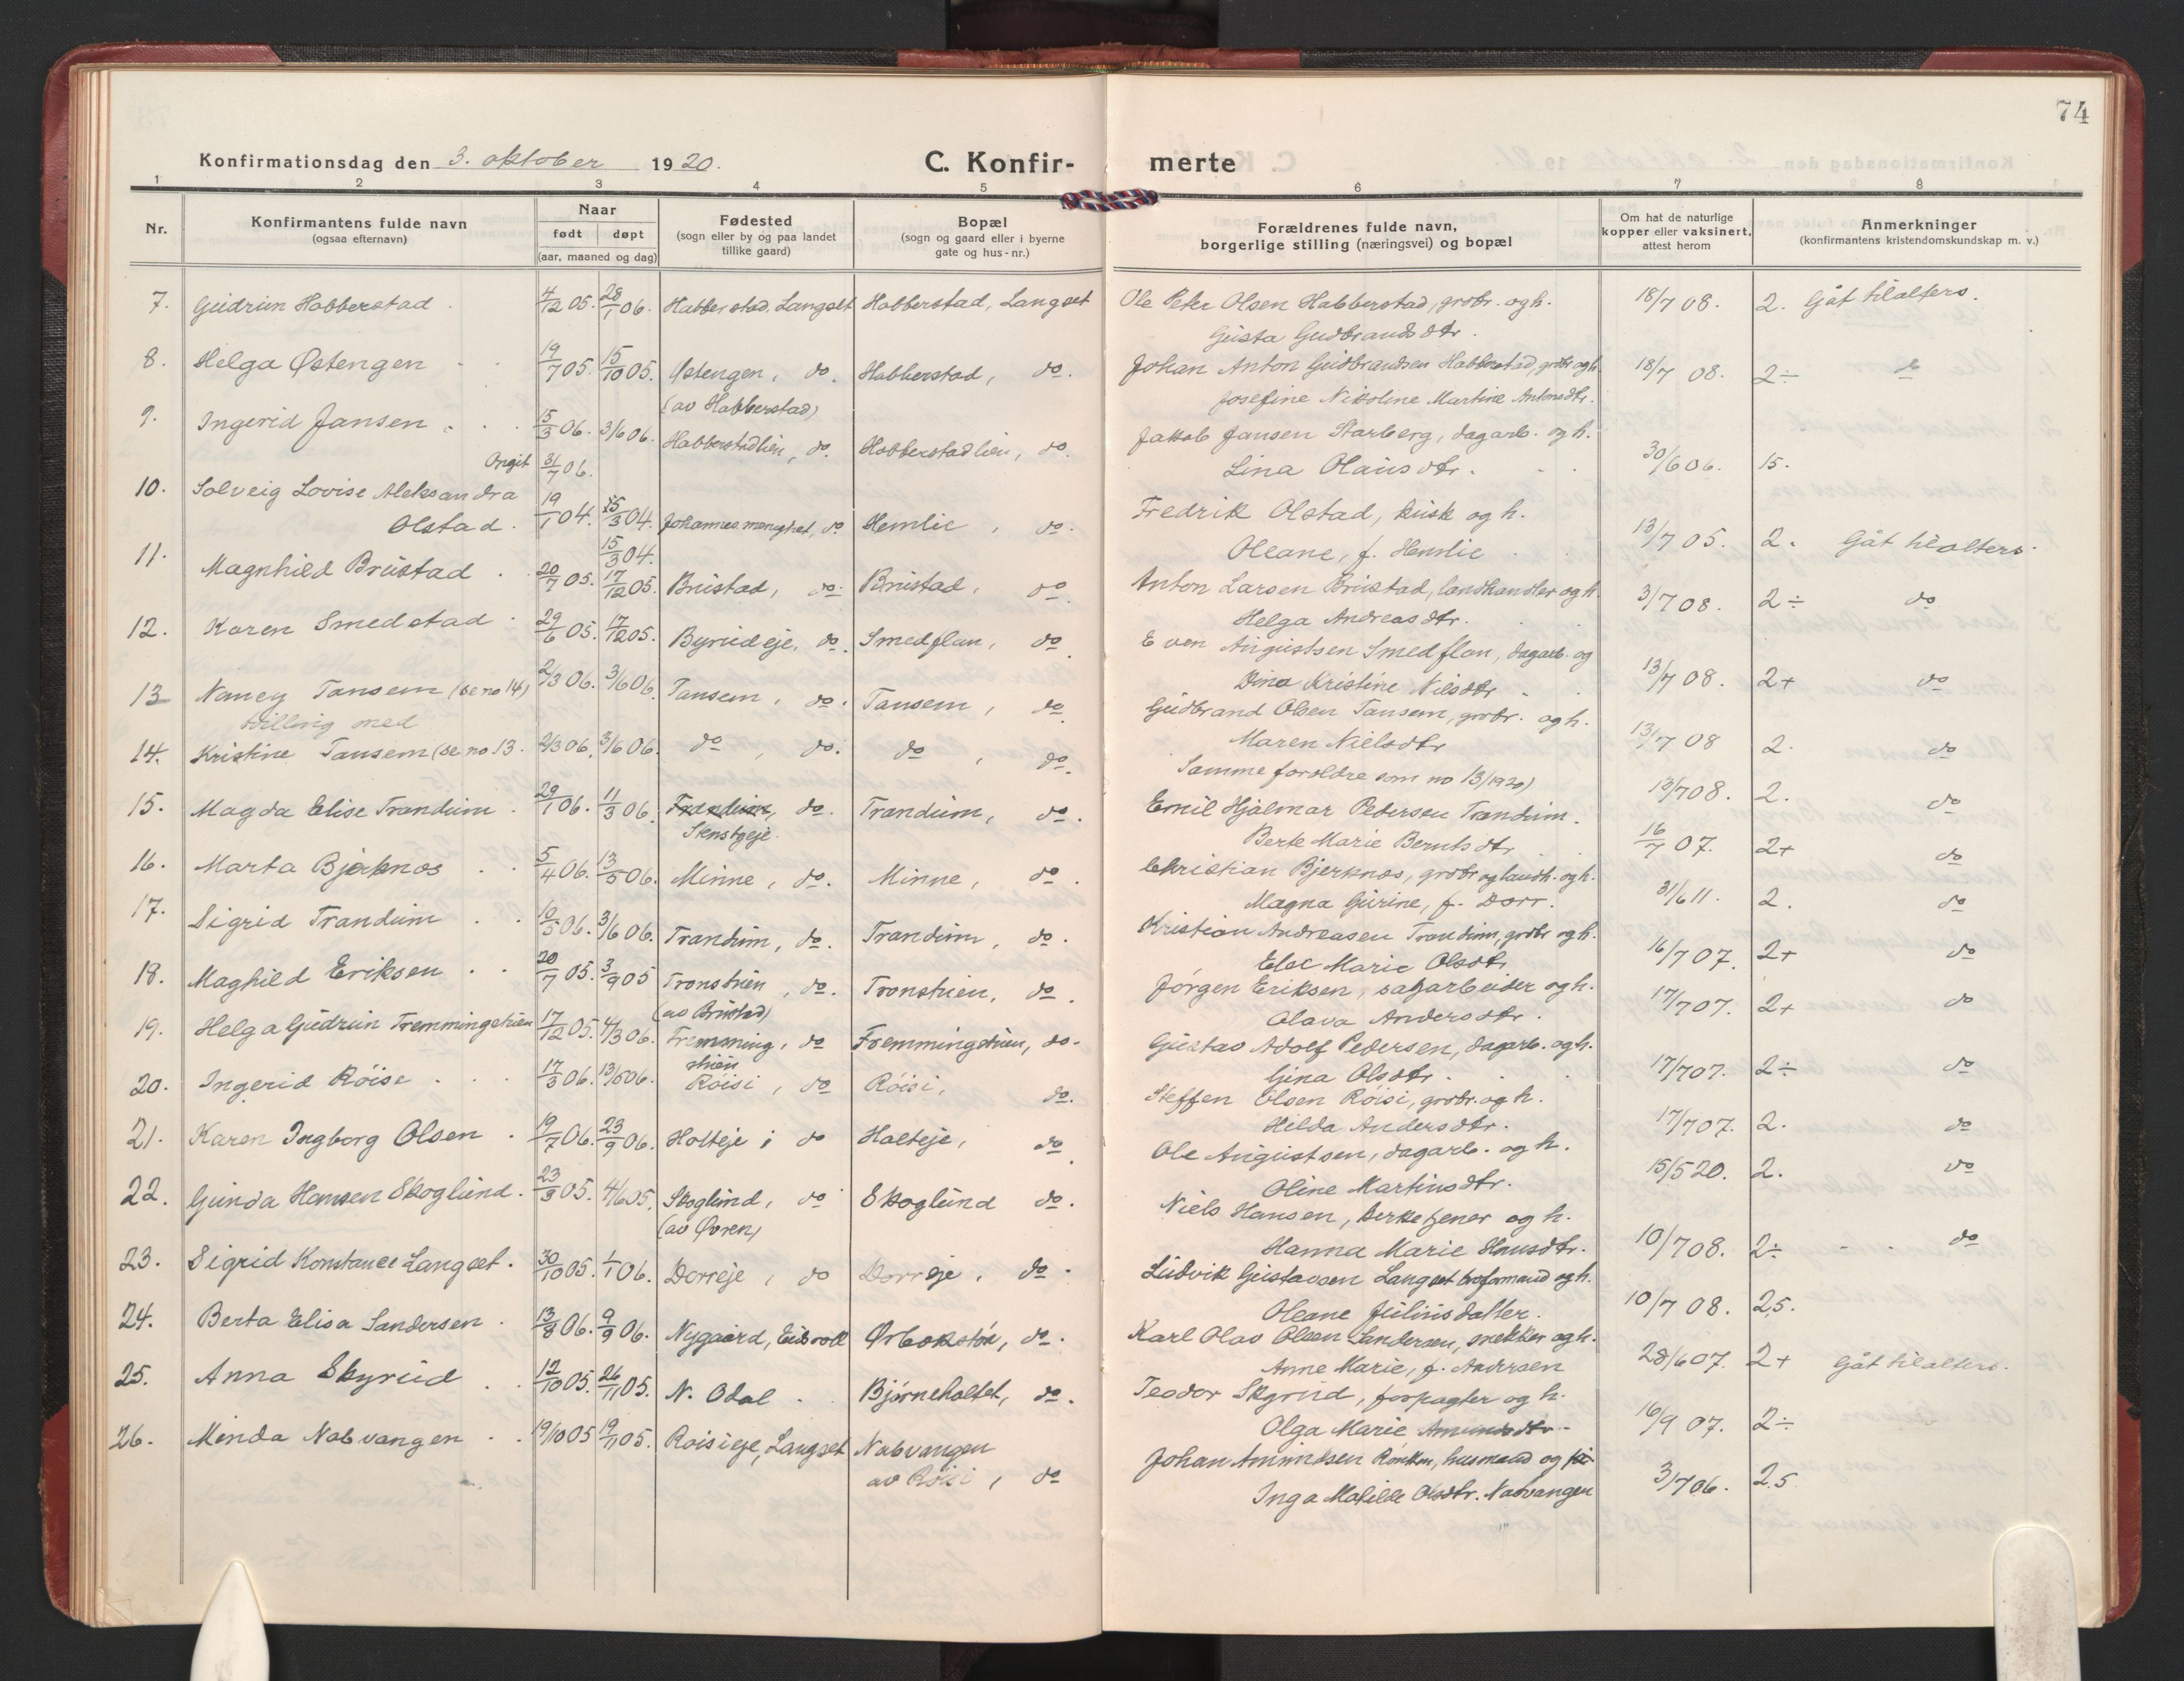 74
Konfirmationsdag den 3. oktober 1920.
C. Konfir- merte
1 2 3 4 5 6 7 8
Nr. Konfirmantens fulde navn (ogsaa efternavn) Naar født døpt (aar, maaned og dag) Fødested (sogn eller by og paa landet tillike gaard) Bopæl (sogn og gaard eller i byerne gate og hus-nr.) Forældrenes fulde navn, borgerlige stilling (næringsvei) og bopæl Om hat de naturlige kopper eller vaksinert, attest herom Anmerkninger (konfirmantens kristendomskundskap m. v.)
7. Gudrun Habberstad 4/12 05. 28/1 06. Habberstad, Langset Habberstad, Langset Ole Peter Olsen Habberstad, grbr. og h. 18/7 08. 2. Gåt til alters.
Gusta Gudbrandsdtr.
8. Helga Østengen 19/7 05. 15/10 05. Østengen, do. Habberstad, do. Johan Anton Gudbrandsen Habberstad, grbr. og h. 18/7 08. 2÷ do
(av Habberstad) Josefine Nikoline Martine Antonsdtr.
9. Ingerid Jansen 15/3 06. 3/6 06. Habberstadlien, do. Habberstadlien, do. Jakob Jansen Starberg, dagarb. og h.
Opgit 31/7 06. Lina Olausdtr. 30/6 06. 15.
10. Solveig Lovise Aleksandra
Olstad. 19/1 04. 15/3 04. Johannes menighet, do Hemlie, do. Fredrik Olstad, kusk og h.
15/3 04. Oleane, f. Hemlie 13/7 05. 2. Gåt til alters.
11. Magnhild Brustad 20/7 05. 17/12 05. Brustad, do. Brustad, do. Anton Larsen Brustad, landhandler og h. 3/7 08. 2÷ do
Helga Andreasdtr.
12. Karen Smedstad 29/6 05. 17/12 05. Byrudeje, do. Smedflan, do. Even Augustsen Smedflan, dagarb. og
Dina Kristine Nilsdtr 13/7 08. 2+ do
13 Nancy Tansem (se no 14) 2/3 06. 3/6 06. Tansem, do. Tansem, do. Gudbrand Olsen Tansem, grbr. og h.
tvilling med Maren Nielsdtr 13/7 08 2. do
14. Kristine Tansem (se no 13. 2/3 06. 3/6 06. do, do. do, do. Samme foreldre som no 13/1920) 13/7 08. 2. do
15. Magda Elise Trandum 29/1 06. 11/3 06. Trandum, do. Trandum, do. Emil Hjalmar Pedersen Trandum.
Stensbyeje. Berte Marie Berntsdtr 16/7 07. 2+ do
16. Marta Bjerknes 5/4 06. 13/5 06. Minne, do. Minne, do. Christian Bjerknes, grbr og landh. og h.
Magna Gurine, f. Dorr. 31/6 11. 2. do
17. Sigrid Trandum 10/5 06. 3/6 06. Trandum, do. Trandum, do. Kristian Andreasen Trandum, grbr og h. 16/7 07. 2+ do
Else Marie Olsdtr
18. Maghild Eriksen 20/7 05. 3/9 05 Tronstuen, do. Tronstuen, do. Jørgen Eriksen, sagarbeider og h. 17/7 07. 2+ do
(av Brustad) Olava Andersdtr.
19. Helga Gudrun Fremmingstuen 17/12 05. 4/3 06. Fremming, do Fremmingstuen, do. Gustav Adolf Pedersen, dagarb. og h.
stuen Gina Olsdtr. 17/7 07. 2÷ do
20. Ingerid Røise 17/3 06. 13/5 06. Røisi, do Røisi, do. Steffen Olsen Røisi, grbr. og h.
Hilda Andersdtr. 17/7 07. 2. do
21. Karen Ingborg Olsen 19/7 06. 23/9 06. Holteje, do Holteje, do. Ole Augustsen, dagarb. og h. 15/5 20. 2. do
Oline Martinsdtr.
22. Gunda Hansen Skoglund. 23/3 05. 4/6 05. Skoglund, do Skoglund do. Niels Hansen, og h.
(av Øvren) Hanna Marie Hansdtr. 10/7 08. 2÷ do
23. Sigrid Konstance Langset. 30/10 05. 1/1 06. Dorreje, do Dorreje, do. Ludvik Gustavsen Langset broformand og h.
Oleane Juliusdatter. 10/7 08. 2,5.
24. Berta Elisa Sandersen 13/8 06. 9/9 06. Nygaard, Eidsvoll Ørbekstøe, do. Karl Olav Olsen Sandersen, snekker og h.
Anne Marie, f. Andersen 28/6 07. 2+ Gåt til alters.
25. Anna Skyrud 12/10 05. 26/11 05. N. Odal Bjørneholtet, do. Teodor Skyrud, forpagter og h.
Olga Marie Amundsdtr. 16/9 07. 2÷
26. Minda Nabvangen 19/10 05 19/11 05. Røisieje, Langset Nabvangen Johan Amundsen husmand og
av Røisi, do Inga Matilde Olsdtr. Nabvangen 3/7 06. 2.5